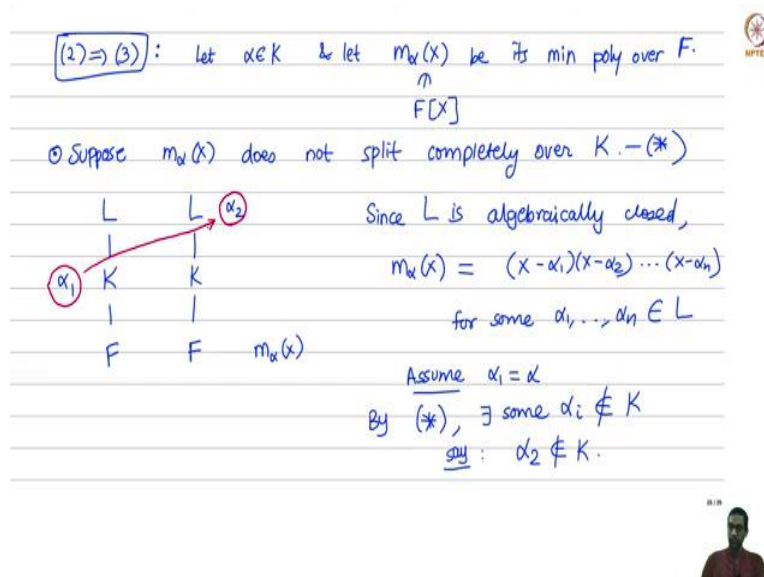 (2) ⇒ (3) : Let α ∈ K & let m_α(X) be its min poly over F.
∩
F[X]
⊙ Suppose m_α(X) does not split completely over K. — (*)
L L α₂
K K
α₁
F F m_α(x)
Since L is algebraically closed,
m_α(x) = (x-α₁)(x-α₂) ... (x-αₙ)
for some α₁, .., αₙ ∈ L
Assume α₁ = α
By (*), ∃ some αᵢ ∉ K
say : α₂ ∉ K.
NPTEL